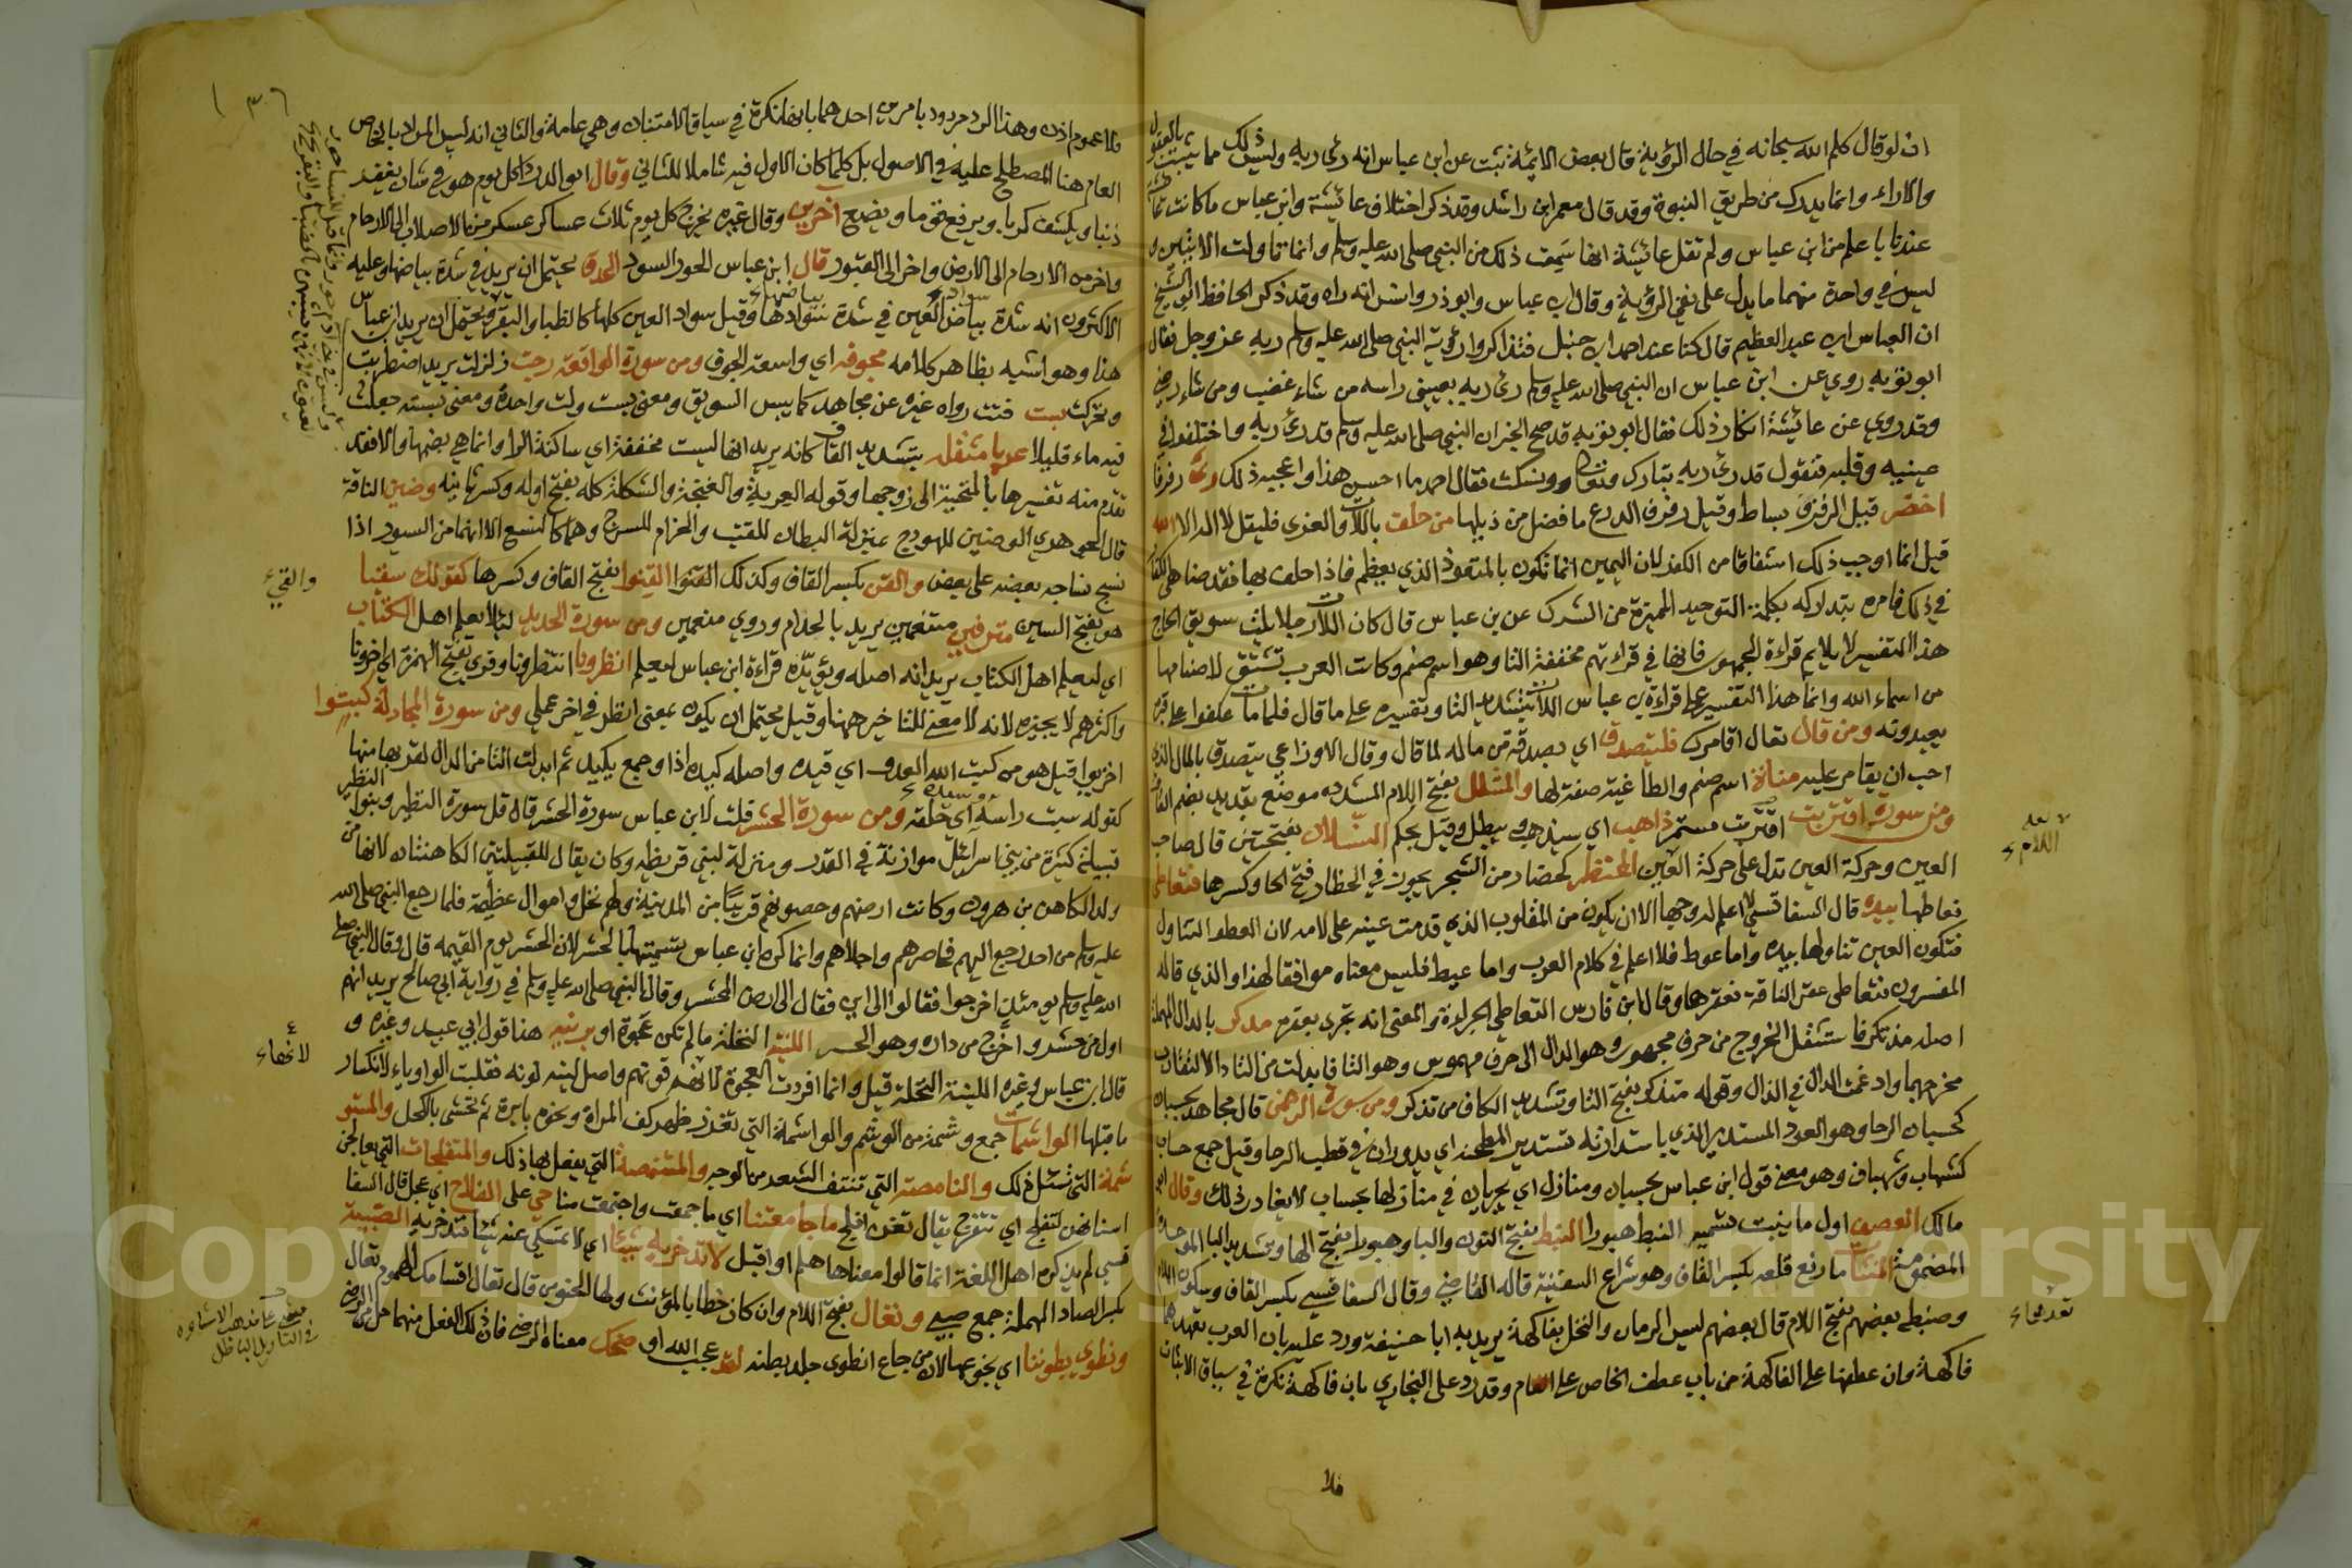 ان لو قال كلم الله سبحانه في حال الرؤية قال بعض الائمة ثبت عن ابن عباس انه رئ ربه وليس ذلك مما يثبت بالعقول
والاراء وانما يدرك من طريق النبوة وقد قال معمر ابن راشد وقد ذكر اختلاف عائشة وابن عباس ما كانت عائشة
عندنا باعلم من ابن عباس ولم تقل عائشة انها سمعت ذلك من النبي صلى الله عليه وسلم وانما تاولت الايتين و
ليس في واحدة منهما ما يدل على نفي الرؤية وقال ابن عباس وابوذر وانس انه راه وقد ذكر الحافظ ابو الشيخ
ان العباس ابن عبد العظيم قال كنا عند احمد ابن حنبل فتذاكروا رؤية النبي صلى الله عليه وسلم ربه عز وجل فقال
ابو ثور روي عن ابن عباس ان النبي صلى الله عليه وسلم رئ ربه بعيني راسه من شاء غضب ومن شاء رضي
وقد روي عن عائشة انكار ذلك فقال ابو ثور قد صح الخبر ان النبي صلى الله عليه وسلم قد رئ ربه واختلفوا في
عينيه وقلبه فنقول قد رئ ربه تبارك وتعالى ونسكت فقال احمد ما احسن هذا واعجبه ذلك رئ رفرفا
اخضر قيل الرفرف بساط وقيل رفرف الدرع ما فضل من ذيلها من حلف باللات والعزى فليقل لا اله الا الله
قيل انما اوجب ذلك اشفاقا من الكفر لان اليمين انما تكون بالمعبود الذي يعظم فاذا حلف بها فقد ضاهى الكفار
في ذلك فامره بتداركه بكلمة التوحيد المبرئة من الشرك عن بن عباس قال كان اللات رجلا يلت سويق الحاج
هذا التفسير لا يلايم قراءة الجمهور فانها في قراءتهم مخففة التا وهو اسم صنم وكانت العرب تشتق لاصنامها
من اسماء الله وانما هذا التفسير على قراءة بن عباس اللات بتشديد التا وتفسيره على ما قال فلما مات عكفوا على قبره
يعبدونه ومن قال تعال اقامرك فليتصدق اي بصدقة من ماله لما قال وقال الاوزاعي يتصدق بالمال الذي
احب ان يقامر عليه مناة اسم صنم والطاغية صفة لها والمشلل بفتح اللام المشدده موضع بقديد بضم القاف
ومن سورة اقتربت اقتربت مستمر ذاهب اي سيذهب ويبطل وقيل محكم النسلان بفتحتين قال صاحب
العين وحركة العين تدل على حركة العين المحتظر كحضار من الشجر يجوز في الحظار فتح الحا وكسرها فتعاطى
فعاطها بيده قال السفاقسي لا اعلم له وجها الا ان يكون من المقلوب الذي قدمت عينه على لامه لان العطو التناول
فتكون العين تناولها بيده واما عوط فلا اعلم في كلام العرب واما عيط فليس معناه موافقا لهذا والذي قاله
المفسرون فتعاطى عقر الناقة فعقرها وقال ابن فارس التعاطي الجراءة والمعنى انه تجرى بعقره مدكر بالدال المهملة
اصله مذتكر فاستثقل الخروج من حرف مجهور وهو الدال الى حرف مهموس وهو التا فابدلت من التا دالا لتقارب
مخرجهما وادغمت الدال في الدال وقوله متذكر بفتح التا وتشديد الكاف من تذكر ومن سورة الرحمن قال مجاهد بحسبان
كحسبان الرحا وهو العود المستدير الذي باستدارته تستدير المطحنه اي يدوران في قطب الرحا وقيل جمع حساب
كشهاب وشهبان وهو معنى قول ابن عباس بحسبان ومنازل اي يجريان في منازلها بحساب لا يغادر ذلك وقال ابو
مالك العصف اول ما ينبت تسميه النبط هبورا النبط بفتح النون والبا وهبورا بفتح الها وتشديد البا الموحدة
المضمومة المنشات ما رفع قلعه بكسر القاف وهو شراع السفينة قاله القاضي وقال السفاقسي بكسر القاف وسكون اللام
وضبطه بعضهم بفتح اللام قال بعضهم ليس الرمان والنخل بفاكهة يريد به ابا حنيفة ورد عليه بان العرب تعدها
فاكهة وان عطفها على الفاكهة من باب عطف الخاص على العام وقد رد على البخاري بان فاكهة نكرة في سياق الاثبات
فلا
لا نعلم
اللام
تعدهما
فلا عموم اذن وهذا الرد مردود بامرين احدهما بانها نكرة في سياق الامتنان وهي عامة والثاني انه ليس المراد بالخاص
العام هنا المصطلح عليه في الاصول بل كلما كان الاول فيه شاملا للثاني وقال ابو الدرداء كل يوم هو في شان يغفر
ذنبا ويكشف كربا ويرفع قوما ويضع اخرين وقال غيره يخرج كل يوم ثلاث عساكر عسكر من الاصلاب الى الارحام
واخر من الارحام الى الارض واخر الى القبور قال ابن عباس الحور السود الحدق يحتمل ان يريد في شدة بياضها وعليه
الاكثرون انه شدة بياض العين في شدة سوادها وقيل سواد العين كلها كالظبا والبقر ويحتمل ان يريد ابن عباس
هذا وهو اشبه بظاهر كلامه مجوفه اي واسعة الجوف ومن سورة الواقعة رجت زلزلت يريد اضطربت
وتحركت بست فتت رواه غيره عن مجاهد كما يبس السويق ومعنى بست ولت واحدة ومعنى بسته جعلت
فيه ماء قليلا عربا مثقلة بتشديد القاف كانه يريد انها ليست مخففة اي ساكنة الرا وانما هي بضمها والا فقد
تقدم منه تفسيرها بالمتحببة الى زوجها وقوله العربة والغنجة والشكلة كله بفتح اوله وكسر ثانيه وضين الناقة
قال الجوهري الوضين للهودج بمنزلة البطان للقتب والحزام للسرج وهما كالنسع الا انهما من السيور اذا
نسج نساجه بعضه على بعض والقن بكسر القاف وكذلك القنوا القنوا بفتح القاف وكسرها كقولك سقيا
هو بفتح السين مترفين متنعمين يريد بالحرام وروي منعمين ومن سورة الحديد لئلا يعلم اهل الكتاب
اي ليعلم اهل الكتاب يريد انه اصله ويؤيده قراءة ابن عباس ليعلم انظرونا انتظرونا وقرئ بفتح الهمزة اي اخرونا
واكثرهم لا يجيزه لانه لا معنى للتاخير ههنا وقيل يحتمل ان يكون بمعنى انظر في اخر عملي ومن سورة المجادلة كبتوا
اخزيوا قيل هو من كبت الله العدو اي قيده واصله كبده اذا وجمع بكبد ثم ابدلت التا من الدال لقربها منها
كقوله سبت راسه اي حلقه ومن سورة الحشر قلت لابن عباس سورة الحشر قال قل سورة النظير وبنوا النظير
قبيلة كبيرة من بني اسرائل موازنة في القدر ومنزلة لبني قريظه وكان يقال للقبيلتين الكاهنتان لانها من
ولد الكاهن بن هرون وكانت ارضهم وحصونهم قريبا من المدينة ولهم نخل واموال عظيمة فلما رجع النبي صلى الله
عليه وسلم من احد رجع اليهم فحاصرهم واجلاهم وانما كره ابن عباس تسميتها بالحشر لان الحشر يوم القيمه قال وقال النبي صلى
الله عليه وسلم يومئذ اخرجوا فقالوا الى اين فقال الى ارض المحشر وقال النبي صلى الله عليه وسلم في رواية ابي صالح يريد انهم
اول من حشر واخرج من داره وهو الحشر اللينة النخلة ما لم تكن عجوة او برنيه هذا قول ابي عبيد وغيره و
قال ابن عباس وغيره اللينة النخلة قيل وانما افردت العجوة لانها قوتهم واصل لينه لونه فقلبت الواو ياء لانكسار
ما قبلها الواشمات جمع وشمة من الوشم والواشمة التي تغرز ظهر كف المراة ونحوه بابرة ثم تحشى بالكحل والمستو
شمة التي تسئل ذلك والنامصة التي تنتف الشعر من الوجه والمتنمصة التي يفعل بها ذلك والمتفلجات التي يعالجن
اسنانهن لتفلج اي تتفرج يقال ثغر افلج ما جامعتنا اي ما جمعت واجتمعت منا حي على الفلاح اي عجل قال السفا
قسي لم يذكره اهل اللغة انما قالوا معناها هلم واقبل لا تدخريه شيئا اي لا تمسكي عنه شيئا تدخريه الصبية
بكسر الصاد المهملة جمع صبي وتعال بفتح اللام وان كان خطابا لمؤنث ولها لخنوس قال تعال اقسامك الهموم تعال
ونطوي بطوننا اي نجوعها لان من جاع انطوى جلد بطنه لقد عجب الله او ضحك معناه الرضى فان ذلك الفعل منهما حل من الرضى
والقيء
لانهاء
في التاويل الباطل